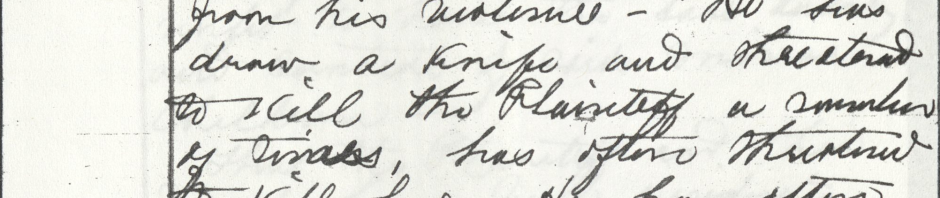 from his violence - He has
draw a Knife and threatened
to Kill the Plaintiff a number
of times, has often threatened
to Kill her. He has often